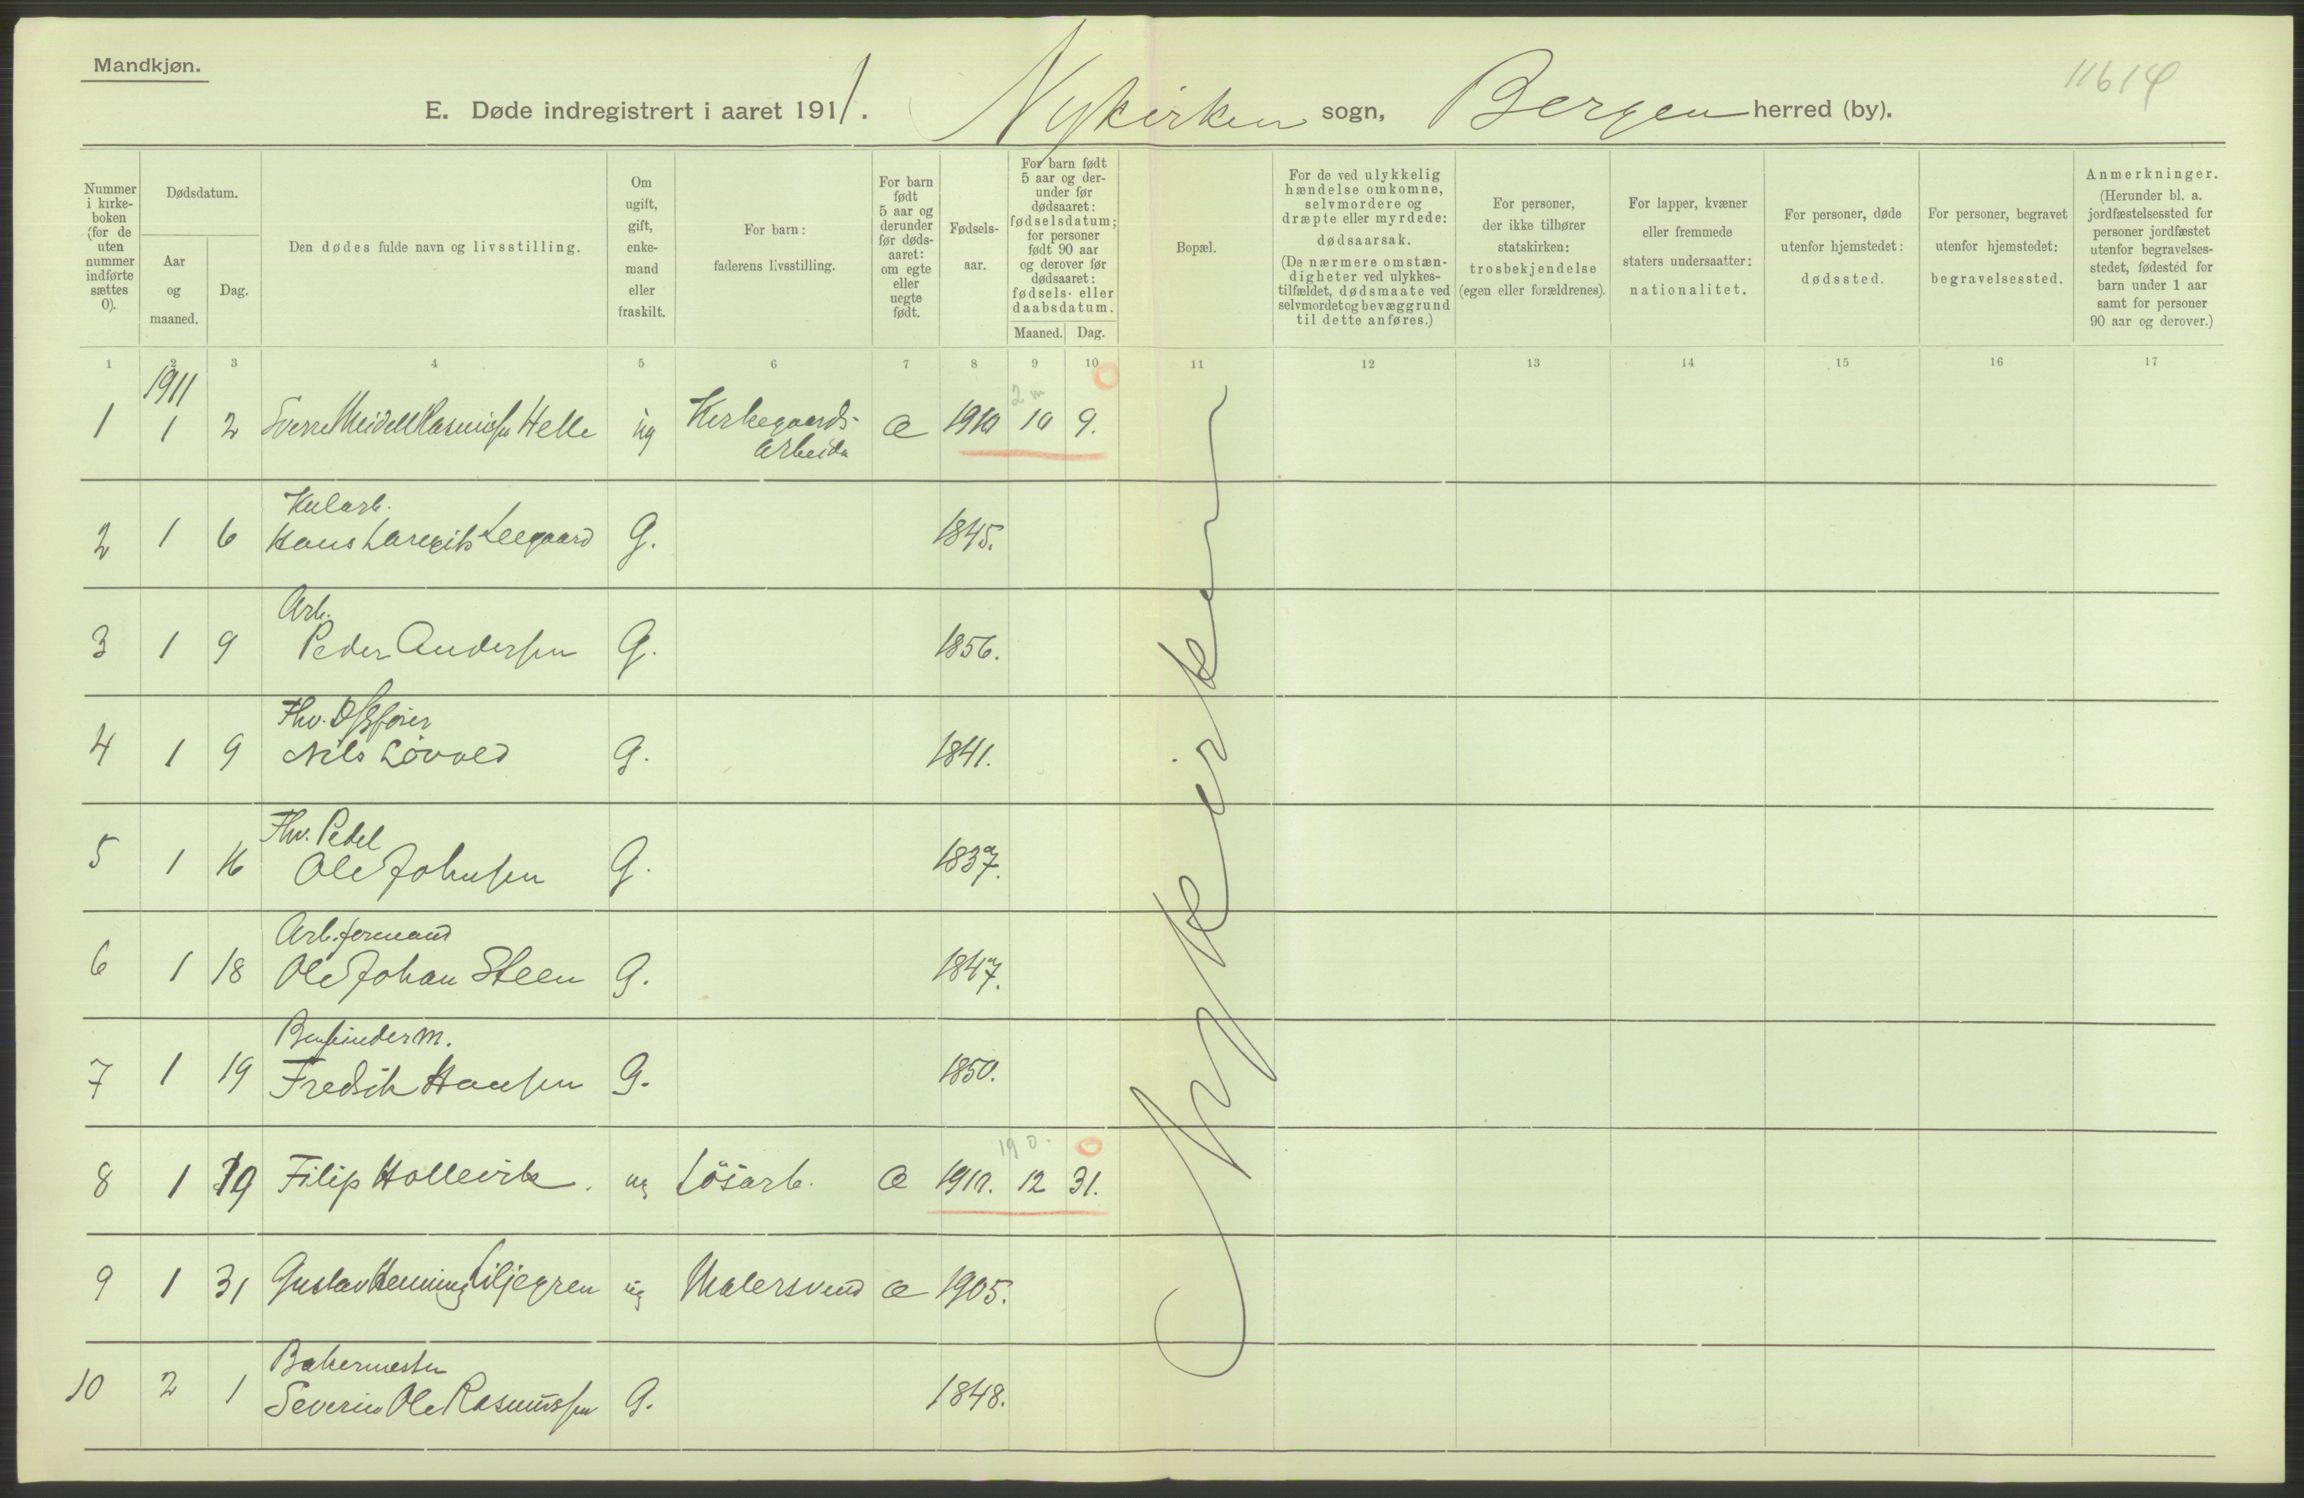 Mandkjøn.
11614
E. Døde indregistrert i aaret 1911. Nykirken sogn, Bergen herred (by).
Nummer i kirke-
boken
(for de
uten
nummer
indførte
sættes
0).
Dødsdatum.
Aar
og
maaned.
Dag.
Den dødes fulde navn og livsstilling.
Om
ugift,
gift,
enke-
mand
eller
fraskilt.
For barn:
faderens livsstilling.
For barn
født
5 aar og
derunder
før døds-
aaret:
om egte
eller
uegte
født.
Fødsels-
aar.
For barn født
5 aar og der-
under før
dødsaaret:
fødselsdatum;
for personer
født 90 aar
og derover før
dødsaaret:
fødsels- eller
daabsdatum.
Maaned. Dag.
Bopæl.
For de ved ulykkelig
hændelse omkomne,
selvmordere og
dræpte eller myrdede:
dødsaarsak.
(De nærmere omstæn-
digheter ved ulykkes-
tilfældet, dødsmaate ved
selvmordet og bevæggrund
til dette anføres.)
For personer,
der ikke tilhører
statskirken:
trosbekjendelse
(egen eller forældrenes).
For lapper, kvæner
eller fremmede
staters undersaatter:
nationalitet.
For personer, døde
utenfor hjemstedet:
dødssted.
For personer, begravet
utenfor hjemstedet:
begravelsessted.
Anmerkninger.
(Herunder bl. a.
jordfæstelsessted for
personer jordfæstet
utenfor begravelses-
stedet, fødested for
barn under 1 aar
samt for personer
90 aar og derover.)
1 2 3 4 5 6 7 8 9 10 11 12 13 14 15 16 17
1911
2 m
1 1 2 Sverre Meidell Rasmussen Helle ug Kirkegaards- æ 1910 10 9.
arbeider
Kularb.
2 1 6 Hans Lauritz Leegaard G. 1845.
Arb.
3 1 9 Peder Andersen G. 1856.
Fhv.
4 1 9 Nils Lövold G. 1841.
Fhv. Pedel
5 1 16 Ole Johnsen G. 1837.
Arb.formand
6 1 18 Ole Johan Steen G. 1847.
7 1 19 Fredrik Hansen G. 1850.
19 0.
8 1 19 Filip Hollevik. ug Lösarb. æ 1910. 12 31.
9 1 31 Gustav Henning Liljegren ug Malersvend æ 1905.
Bakermester
10 2 1 Severin Ole Rasmussen G. 1848.
Nykirken